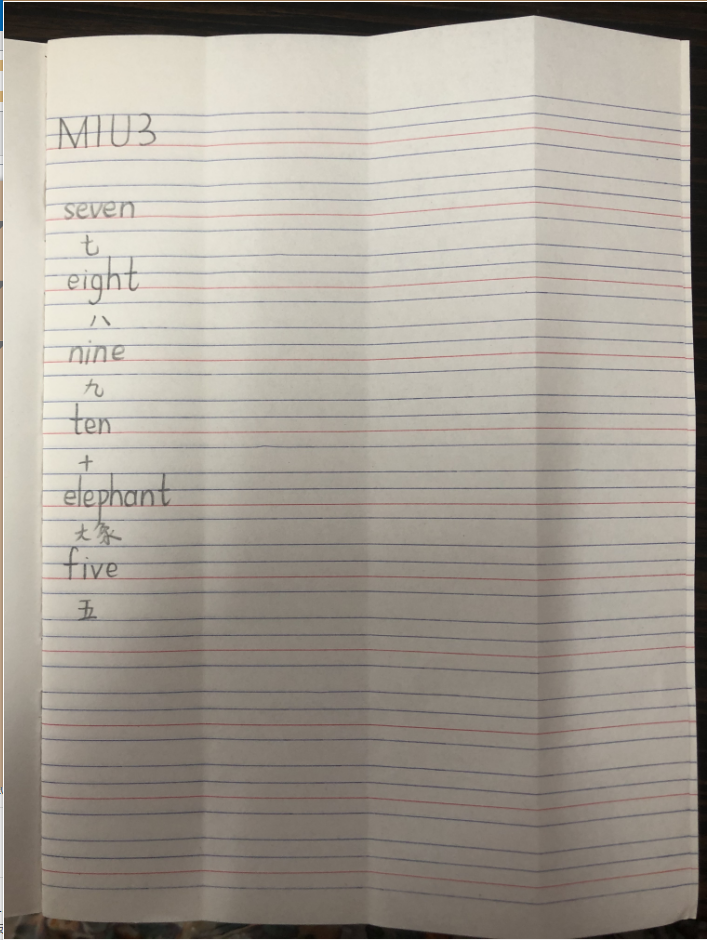 M1U3
seven
七
eight
八
nine
九
ten
十
elephant
大象
five
五